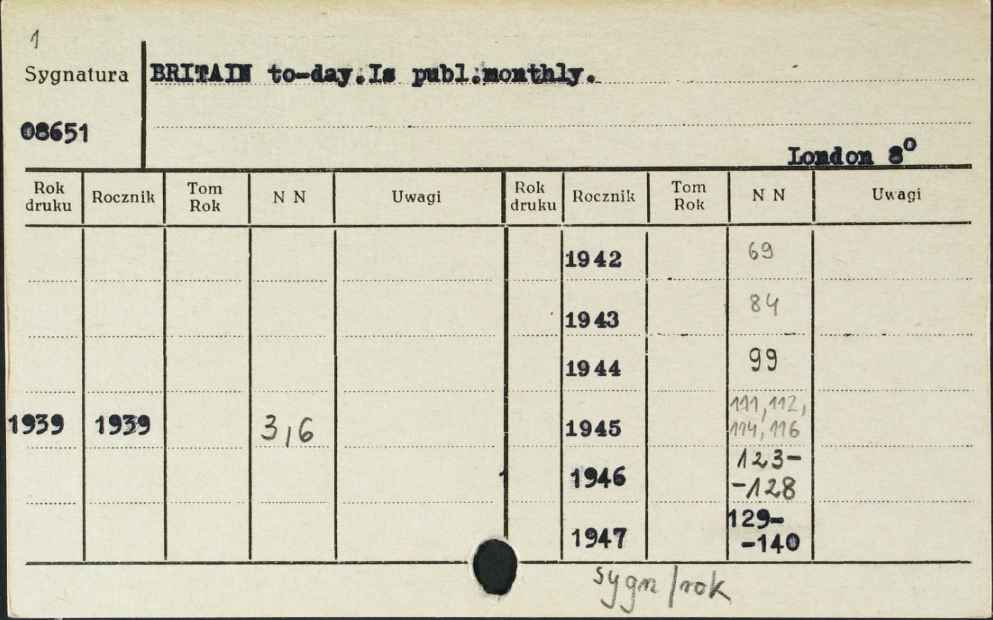 1
Sygnatura BRITAIN to-day.Is publ.monthly.
08651
London 8°
Rok druku Rocznik Tom Rok N N Uwagi Rok druku Rocznik Tom Rok N N Uwagi
1942 69
1943 84
1944 99
1939 1939 3,6 1945 111, 112,
114, 116
1946 123-
-128
1947 129-
-140
sygn/rok